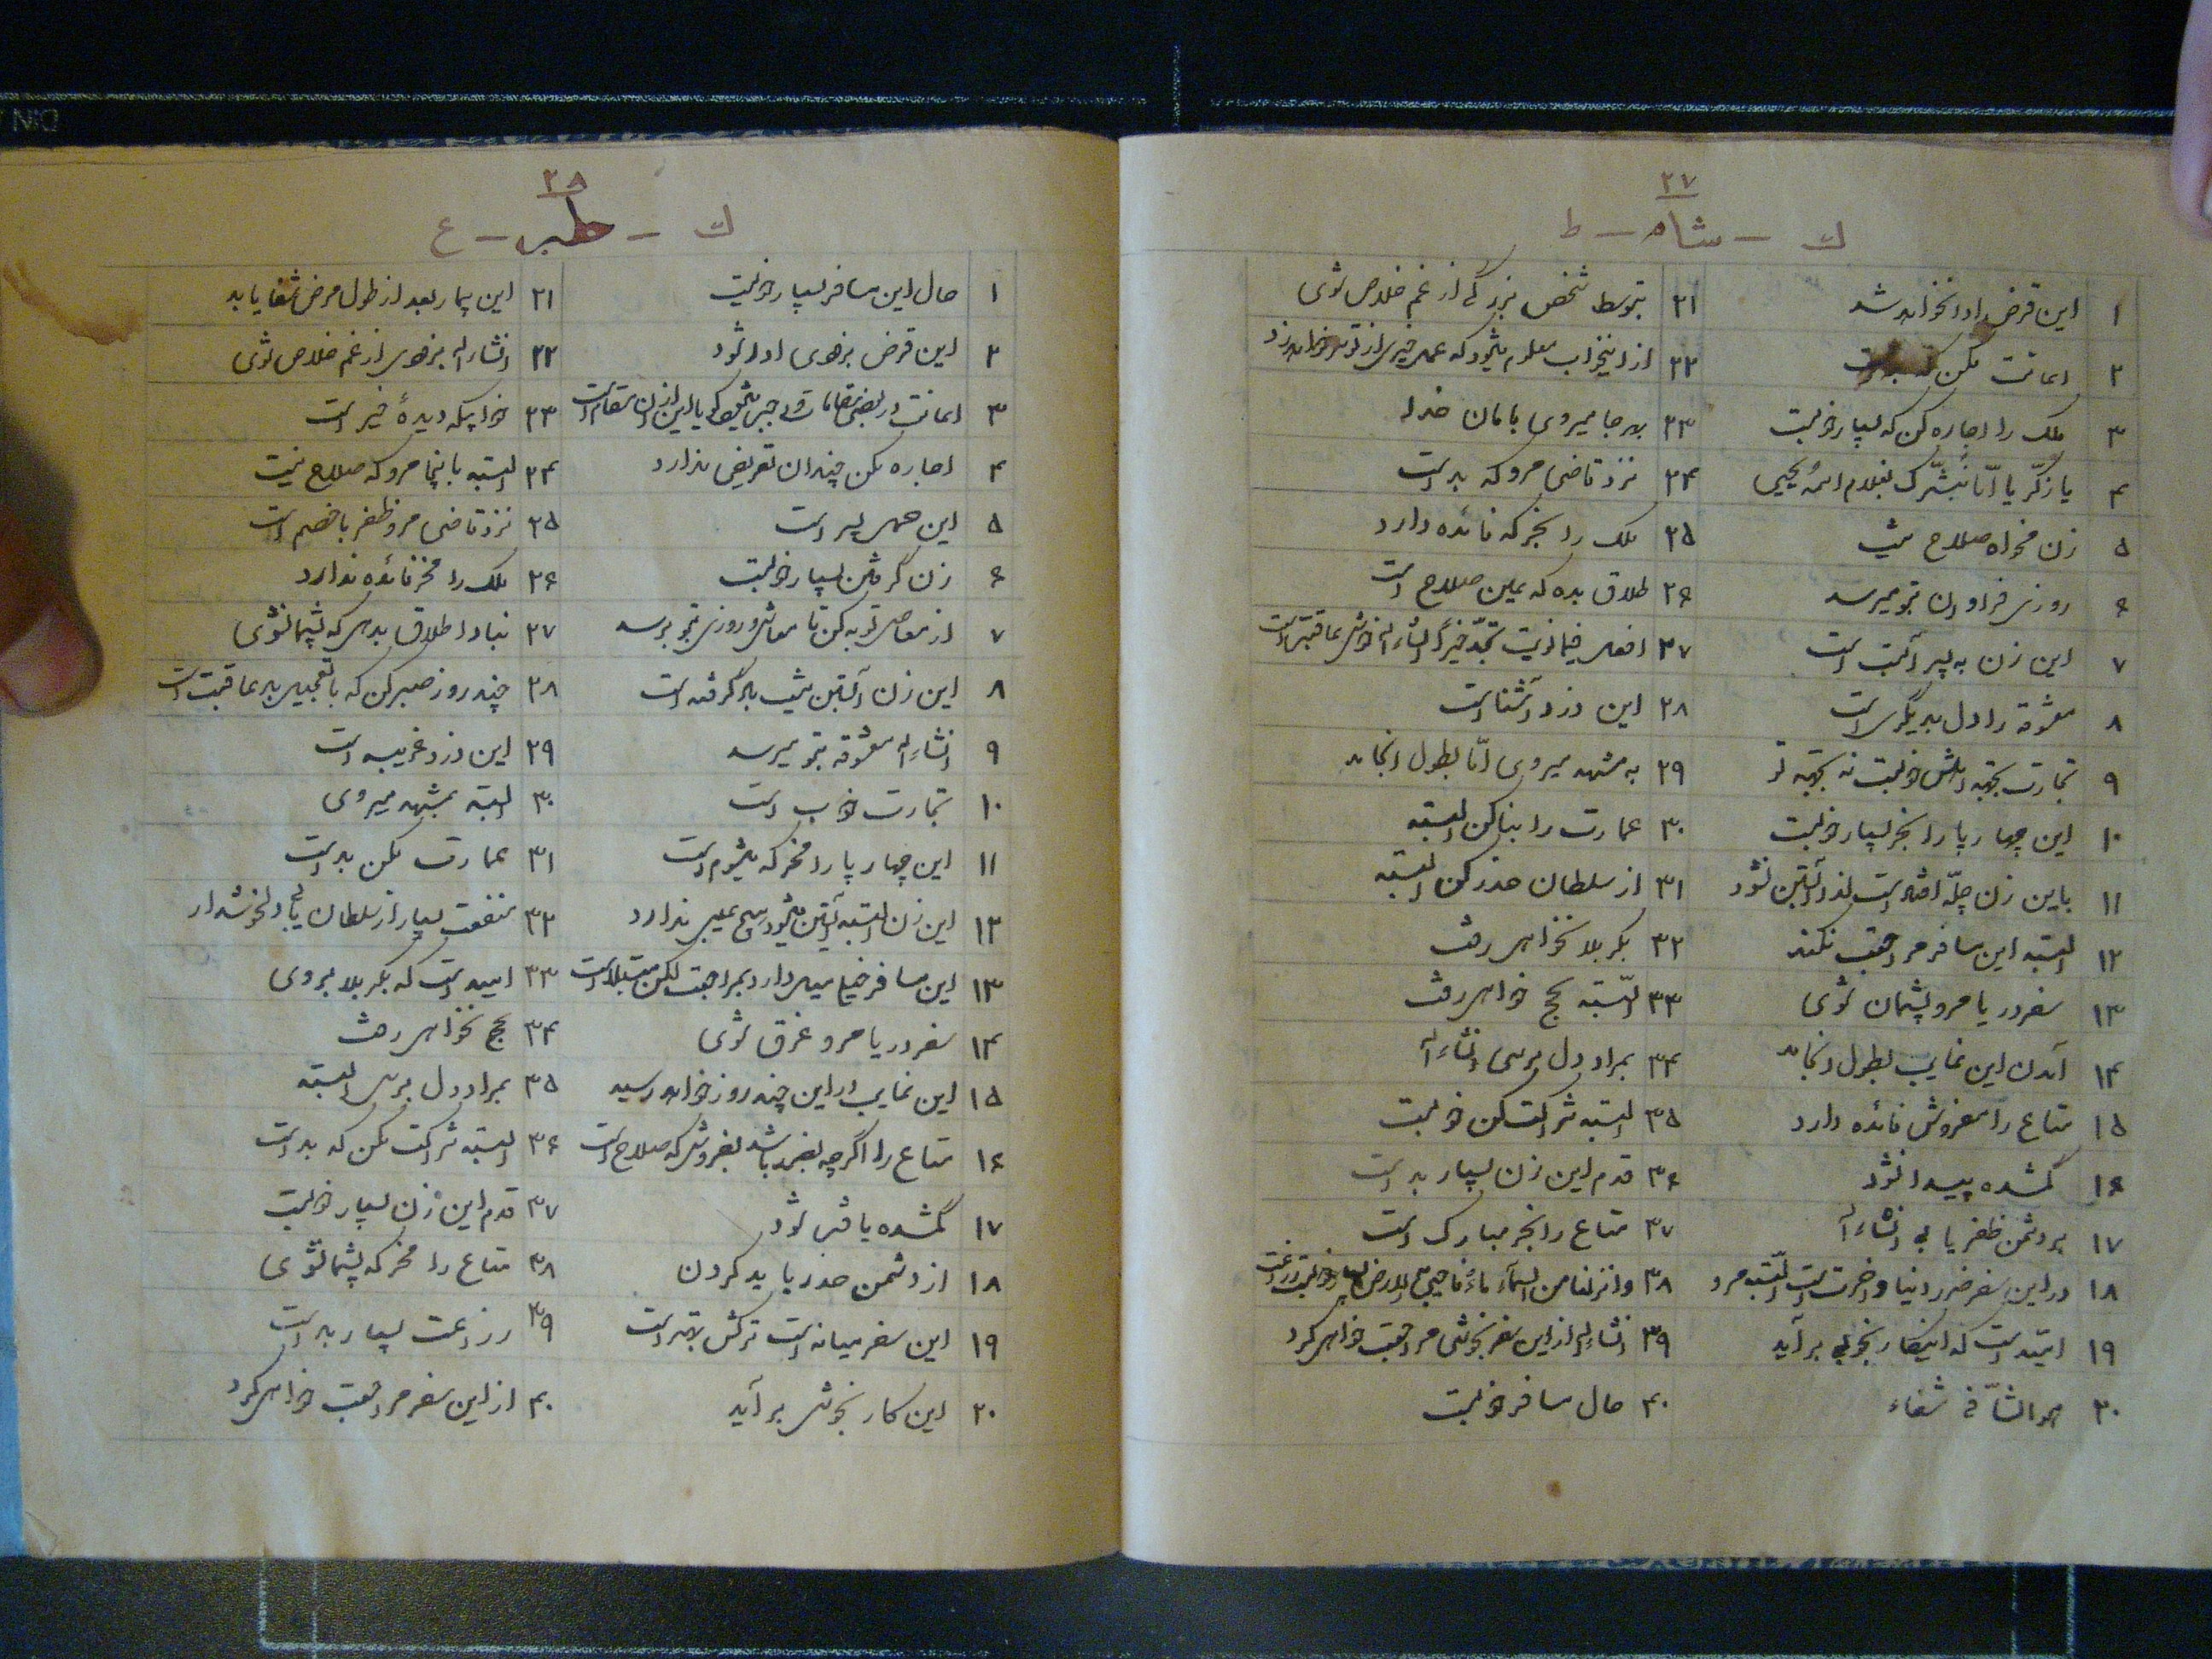 ۲۷
ك - شاه - ط
۱ این قرض ادا نخواهد شد
۲ امانت مکن که
۳ ملک را اجاره کن که بسیار خوبست
۴ یا زکریّا انّا نبشّرک بغلام اسمه یحیی
۵ زن مخواه صلاح نیست
۶ روزی فراوان بتو میرسد
۷ این زن به پسر آبستن است
۸ معشوقه را دل بدیگری است
۹ تجارت بجهة اهلش خوبست نه بجهة تو
۱۰ این چهارپا را بخر بسیار خوبست
۱۱ باین زن چلّه افتاده است لذا آبستن نشود
۱۲ البته این مسافر مراجعت نکند
۱۳ سفر دریا مرو پشیمان شوی
۱۴ آمدن این غایب بطول انجامد
۱۵ متاع را مفروش فائده دارد
۱۶ گمشده پیدا نشود
۱۷ بر دشمن ظفر یابی انشاءالله
۱۸ در این سفر ضرر دنیا و آخرت است البتّه مرو
۱۹ امید است که اینکار بخوبی برآید
۲۰ هو الشّافی شفاء
۲۱ بتوسط شخص بزرگی از غم خلاص شوی
۲۲ از این خواب معلوم میشود که عمل خیری از تو سر خواهد زد
۲۳ بهر جا میروی بامان خدا
۲۴ نزد قاضی مرو که بد است
۲۵ ملک را بخر که فائده دارد
۲۶ طلاق بده که همین صلاح است
۲۷ افعل فیما نویت تجد خیراً انشاءالله خوش عاقبت است
۲۸ این دزد آشنا است
۲۹ به مشهد میروی امّا بطول انجامد
۳۰ عمارت را بنا کن البته
۳۱ از سلطان حذر کن البته
۳۲ بکربلا نخواهی رفت
۳۳ البّته بحج خواهی رفت
۳۴ بمراد دل برسی انشاءالله
۳۵ البته شراکت کن خوبست
۳۶ قدم این زن بسیار بد است
۳۷ متاع را بخر مبارک است
۳۸ و انزلنا من السمآء ماءً فاحیی به الارض بسیار خوبست زراعت
۳۹ انشاءالله از این سفر بخوشی مراجعت خواهی کرد
۴۰ حال مسافر خوبست
۲۸
ك - طبر - ع
۱ حال این مسافر بسیار خوبست
۲ این قرض بزودی ادا شود
۳ امانت در بعضی مقامات واجب میشود گویا این از آن مقام است
۴ اجاره مکن چندان تعریفی ندارد
۵ این حمل پسر است
۶ زن گرفتن بسیار خوبست
۷ از معاصی توبه کن تا معاش و روزی بتو برسد
۸ این زن آبستن نیست باد گرفته است
۹ انشاءالله معشوقه بتو میرسد
۱۰ تجارت خوب است
۱۱ این چهارپا را مخر که میشوم است
۱۲ این زن البته آبستن میشود هیچ عیبی ندارد
۱۳ این مسافر خیلی میل دارد بمراجعت لکن مبتلا است
۱۴ سفر دریا مرو غرق شوی
۱۵ این غایب در این چند روز خواهد رسید
۱۶ متاع را اگرچه بضرر باشد بفروش که صلاح است
۱۷ گمشده یافت شود
۱۸ از دشمن حذر باید کردن
۱۹ این سفر میانه است ترکش بهتر است
۲۰ این کار بخوشی برآید
۲۱ این بیمار بعد از طول مرض شفا یابد
۲۲ انشاءالله بزودی از غم خلاص شوی
۲۳ خوابیکه دیدهٔ خیر است
۲۴ البته بآنجا مرو که صلاح نیست
۲۵ نزد قاضی مرو ظفر با خصم است
۲۶ ملک را مخر فائده ندارد
۲۷ مبادا طلاق بدهی که پشیمان شوی
۲۸ چند روز صبر کن که با تعجیل بد عاقبت است
۲۹ این دزد غریبه است
۳۰ البته بمشهد میروی
۳۱ عمارت مکن بد است
۳۲ منفعت بسیار از سلطان یابی دلخوشدار
۳۳ امید است که بکربلا بروی
۳۴ بحج نخواهی رفت
۳۵ بمراد دل برسی البته
۳۶ البته شراکت مکن که بد است
۳۷ قدم این زن بسیار خوبست
۳۸ متاع را مخر که پشیمان شوی
۳۹ زراعت بسیار بد است
۴۰ از این سفر مراجعت خواهی کرد